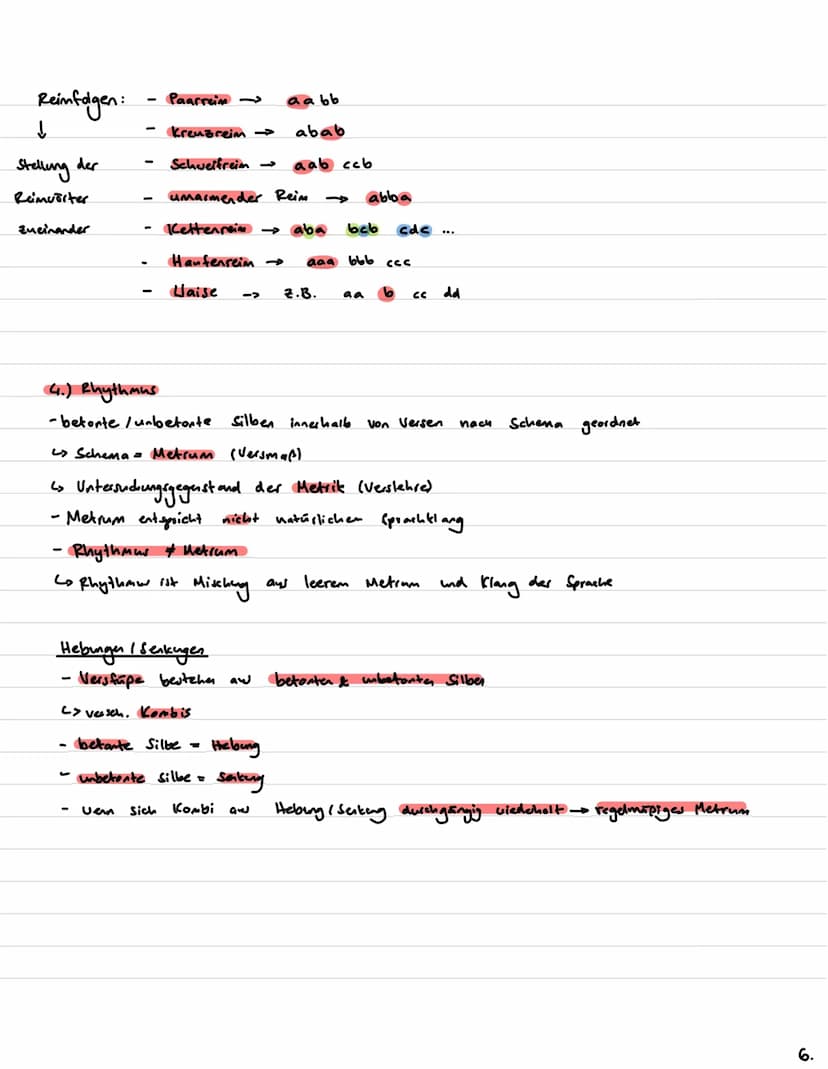 Reimfolgen: - Paarreim → aabb
↓ - Kreuzreim → abab
Stellung der - Schweifreim → aab ccb
Reimwörter - umarmender Reim → abba
zueinander - Kettenreim → aba bcb cdc ...
- Haufenreim → aaa bbb ccc
- Waise -> z.B. aa b cc dd
4.) Rhythmus
- betonte / unbetonte Silben innerhalb von Versen nach Schema geordnet
↳ Schema = Metrum (Versmaß)
↳ Untersuchungsgegenstand der Metrik (Verslehre)
- Metrum entspricht nicht natürlichem Sprachklang
- Rhythmus ≠ Metrum
↳ Rhythmus ist Mischung aus leerem Metrum und Klang der Sprache
Hebungen / Senkungen
- Versfüße bestehen aus betonten & unbetonten Silben
↳ versch. Kombis
- betonte Silbe = Hebung
- unbetonte Silbe = Senkung
- wenn sich Kombi aus Hebung / Senkung durchgängig wiederholt → regelmäßiges Metrum
6.